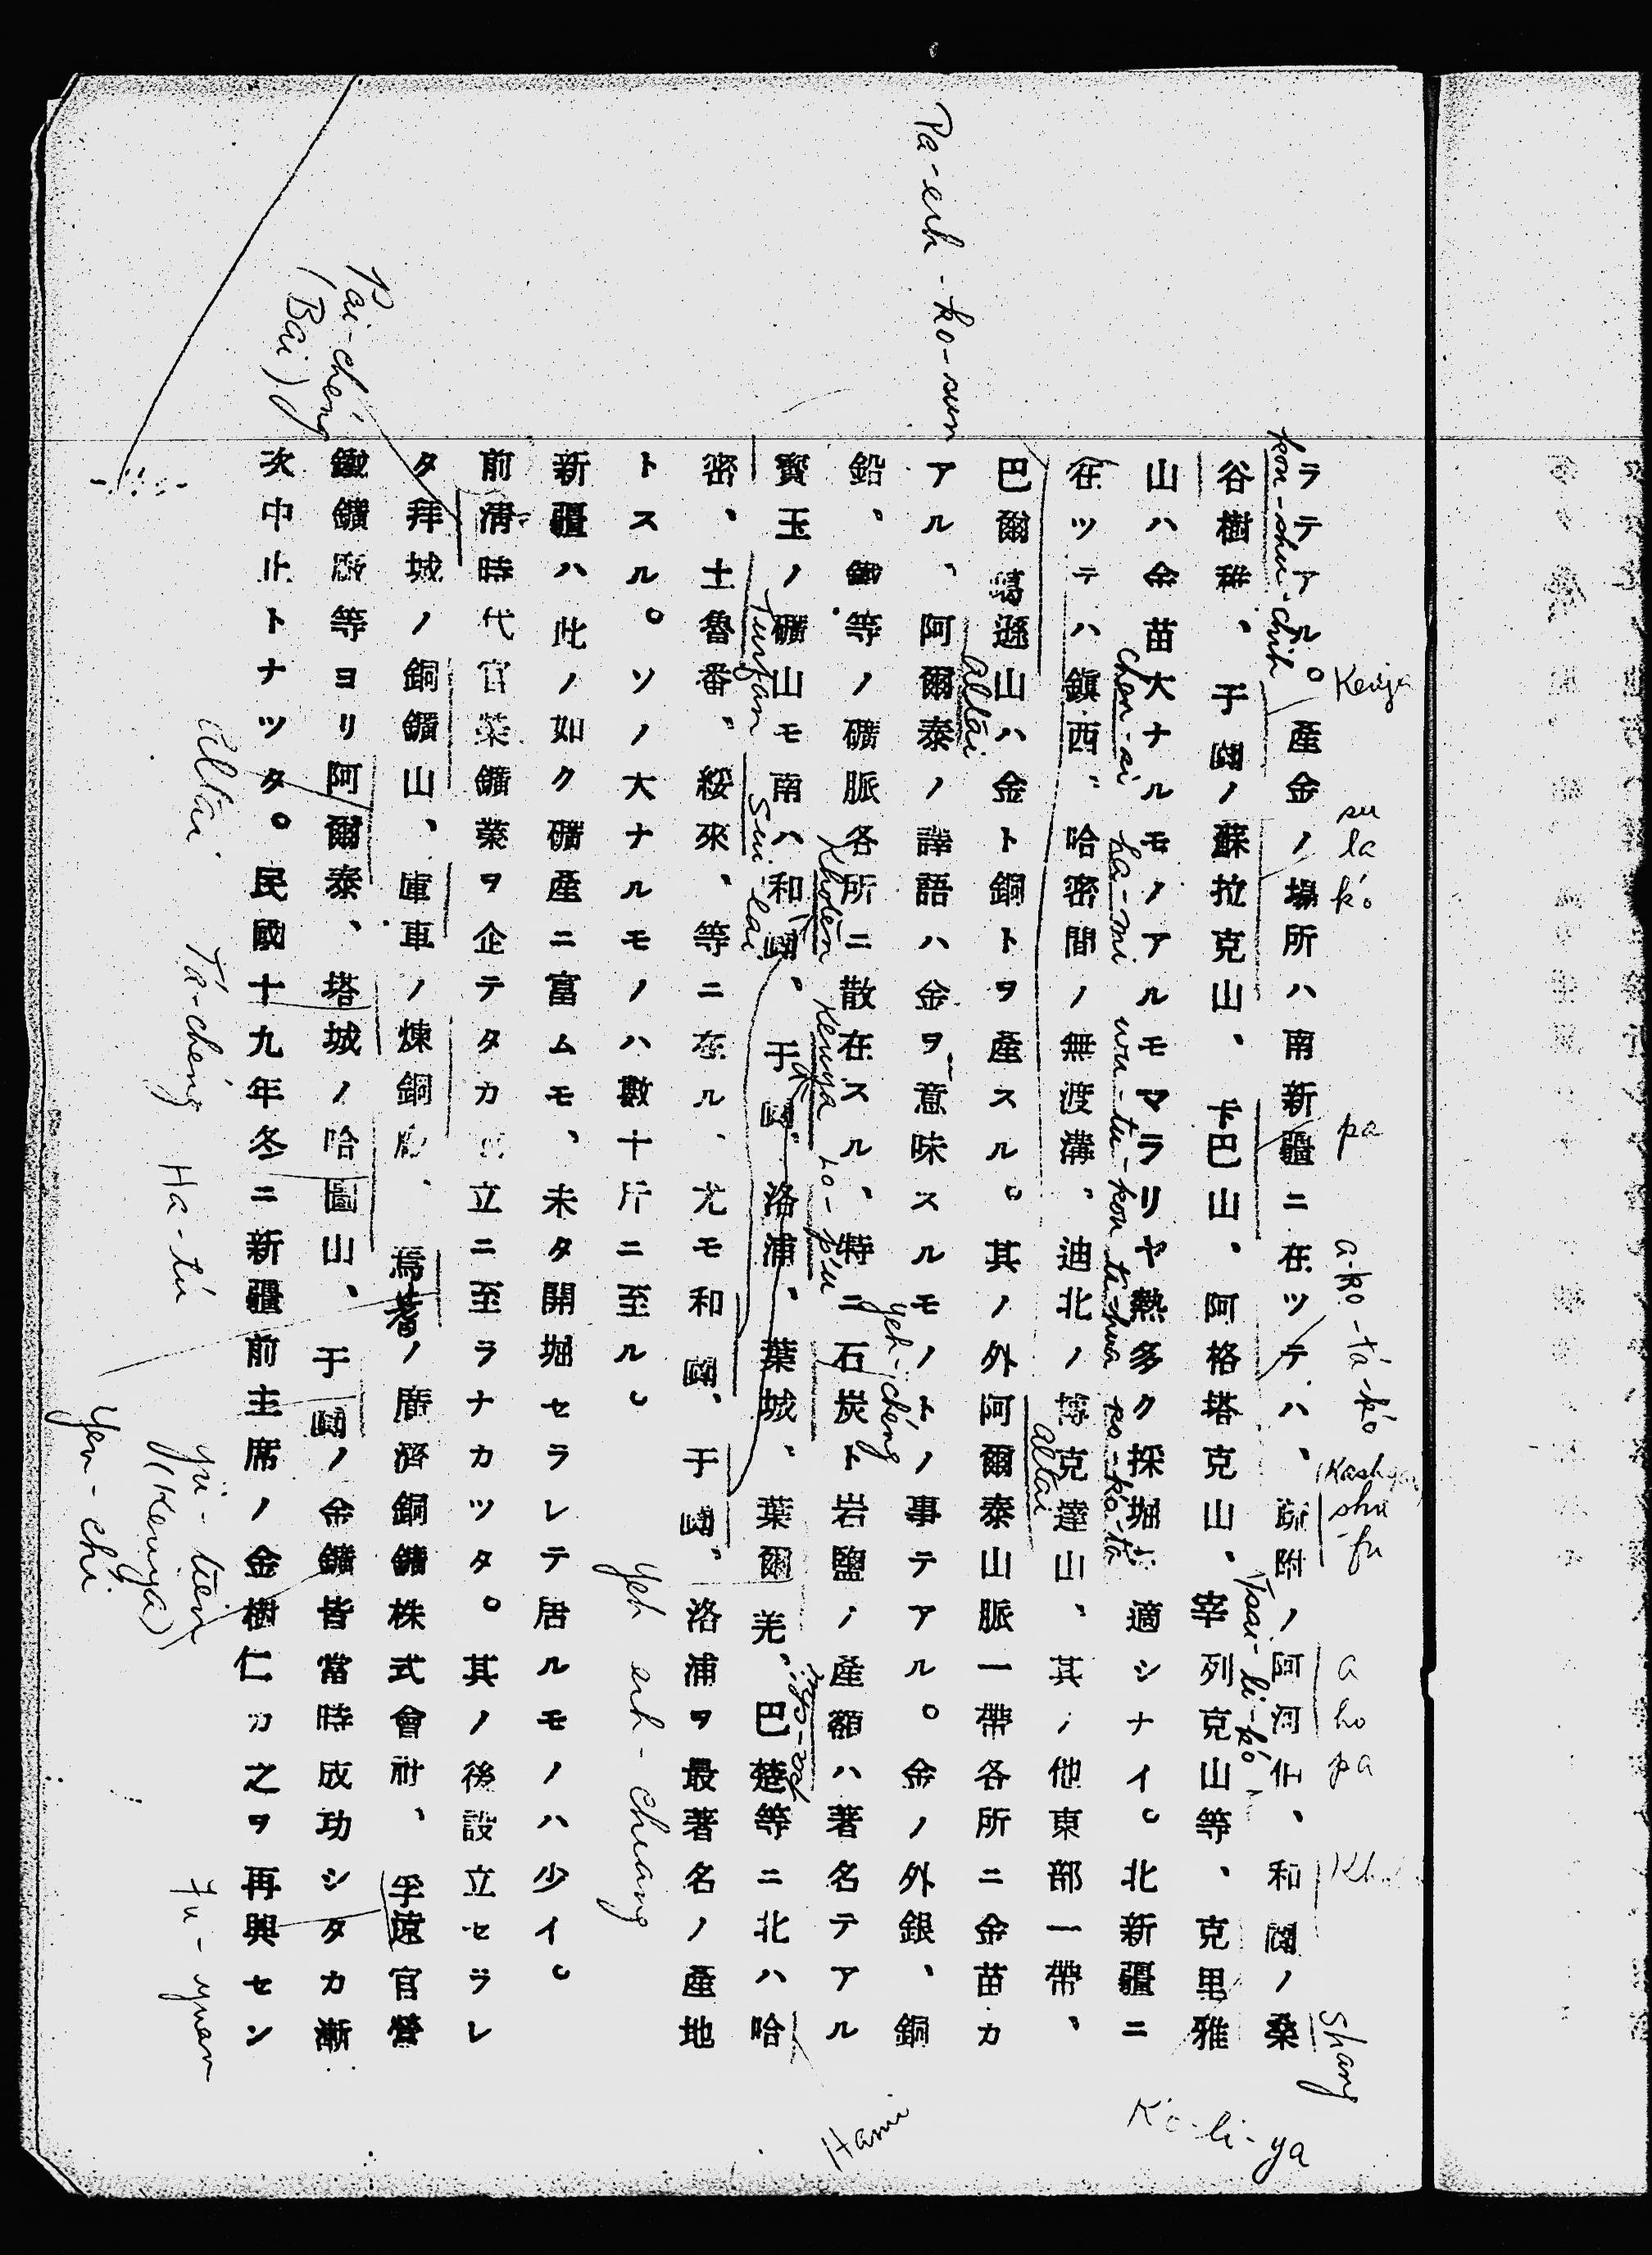 ラテアル。產金ノ場所ハ南新疆ニ在ツテハ、疏附ノ阿河伯、和闐ノ桑
谷樹雅、于闐ノ蘇拉克山、卡巴山、阿格塔克山、宰列克山等、克里雅
山ハ金苗大ナルモノアルモマラリヤ熱多ク採堀ニ適シナイ。北新疆ニ
在ツテハ鎭西、哈密間ノ無渡溝、迪北ノ博克達山、其ノ他東部一帶、
巴爾噶遜山ハ金ト銅トヲ產スル。其ノ外阿爾泰山脈一帶各所ニ金苗カ
アル、阿爾泰ノ譯語ハ金ヲ意味スルモノトノ事テアル。金ノ外銀、銅
鉛、鐵等ノ礦脈各所ニ散在スル、特ニ石炭ト岩鹽ノ產額ハ著名テアル
寶玉ノ礦山モ南ハ和闐、于闐、洛浦、葉城、葉爾羌、巴楚等ニ北ハ哈
密、土魯番、綏來、等ニ在ル、尤モ和闐、于闐、洛浦ヲ最著名ノ產地
トスル。ソノ大ナルモノハ數十斤ニ至ル。
新疆ハ此ノ如ク礦產ニ富ムモ、未タ開堀セラレテ居ルモノハ少イ。
前淸時代官業鑛業ヲ企テタカ立ニ至ラナカツタ。其ノ後設立セラレ
タ拜城ノ銅鑛山、庫車ノ煉銅廠、焉耆ノ廣濟銅鑛株式會社、孚遠官營
鐵鑛廠等ヨリ阿爾泰、塔城ノ哈圖山、于闐ノ金鑛皆當時成功シタカ漸
次中止トナツタ。民國十九年冬ニ新疆前主席ノ金樹仁カ之ヲ再興セン
kou-shu-chih
Keriya
su
la
k'o
pa
a-ko-ta-k'o
(Kashgar)
shu
fu
a
ho
pa
Kh
shang
Tsai-li-k'o
K'o-li-ya
chen-si
ha-mi
wu-tu-kou
ti-hua
po-k'o-ta
Pa-erh-ko-sun
altai
altai
Khoten
Keriya
Lo-p'u
Yeh-cheng
Hami
Turfan
Sui-lai
Yeh erh-chiang
Pai-cheng
(Bai)
Altai
Ta-cheng
Ha-tu
Yu-tien
(Keriya)
Yen-chi
Fu-yuan